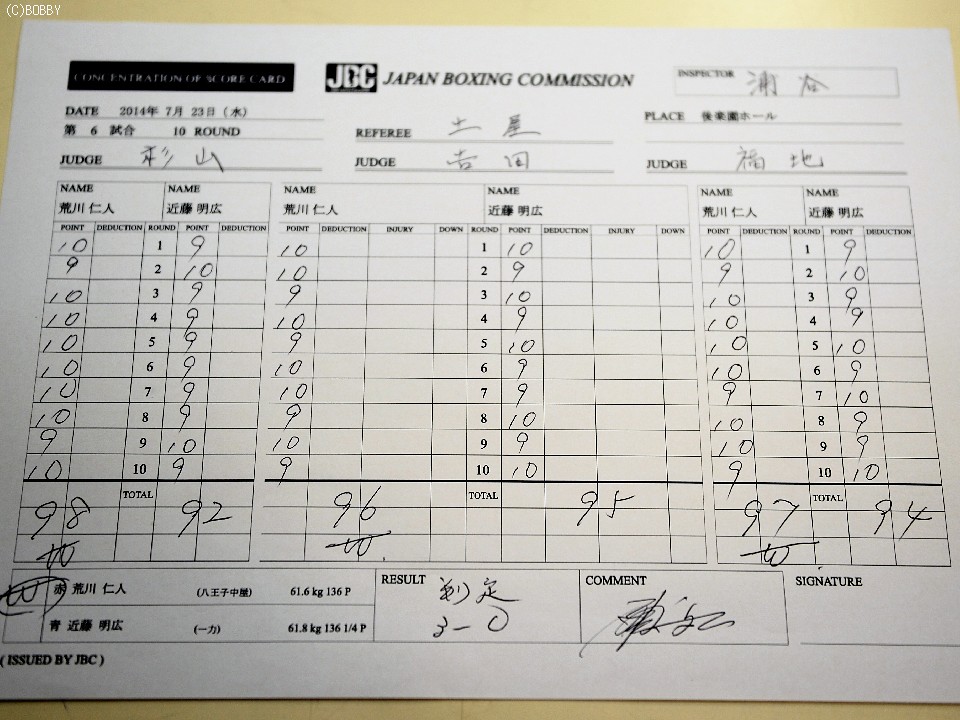 (C)BOBBY
CONCENTRATION OF SCORE CARD
JBC JAPAN BOXING COMMISSION
INSPECTOR 浦谷
DATE 2014年 7月 23日 (水)
PLACE 後楽園ホール
第 6 試合 10 ROUND
REFEREE 土屋
JUDGE 杉山
JUDGE 吉田
JUDGE 福地
NAME NAME NAME NAME NAME NAME
荒川 仁人 近藤 明広 荒川 仁人 近藤 明広 荒川 仁人 近藤 明広
POINT DEDUCTION ROUND POINT DEDUCTION POINT DEDUCTION INJURY DOWN ROUND POINT DEDUCTION INJURY DOWN POINT DEDUCTION ROUND POINT DEDUCTION
10 1 9 10 1 10 10 1 9
9 2 10 10 2 9 9 2 10
10 3 9 9 3 10 10 3 9
10 4 9 10 4 9 10 4 9
10 5 9 9 5 10 10 5 10
10 6 9 10 6 9 10 6 9
10 7 9 10 7 9 9 7 10
10 8 9 9 8 10 10 8 9
9 9 10 10 9 9 10 9 9
10 10 9 9 10 10 9 10 10
TOTAL TOTAL TOTAL
98 92 96 95 97 94
W W W
W 赤 荒川 仁人 (八王子中屋) 61.6 kg 136 P
青 近藤 明広 (一力) 61.8 kg 136 1/4 P
RESULT 判定
3-0
COMMENT
SIGNATURE
( ISSUED BY JBC )